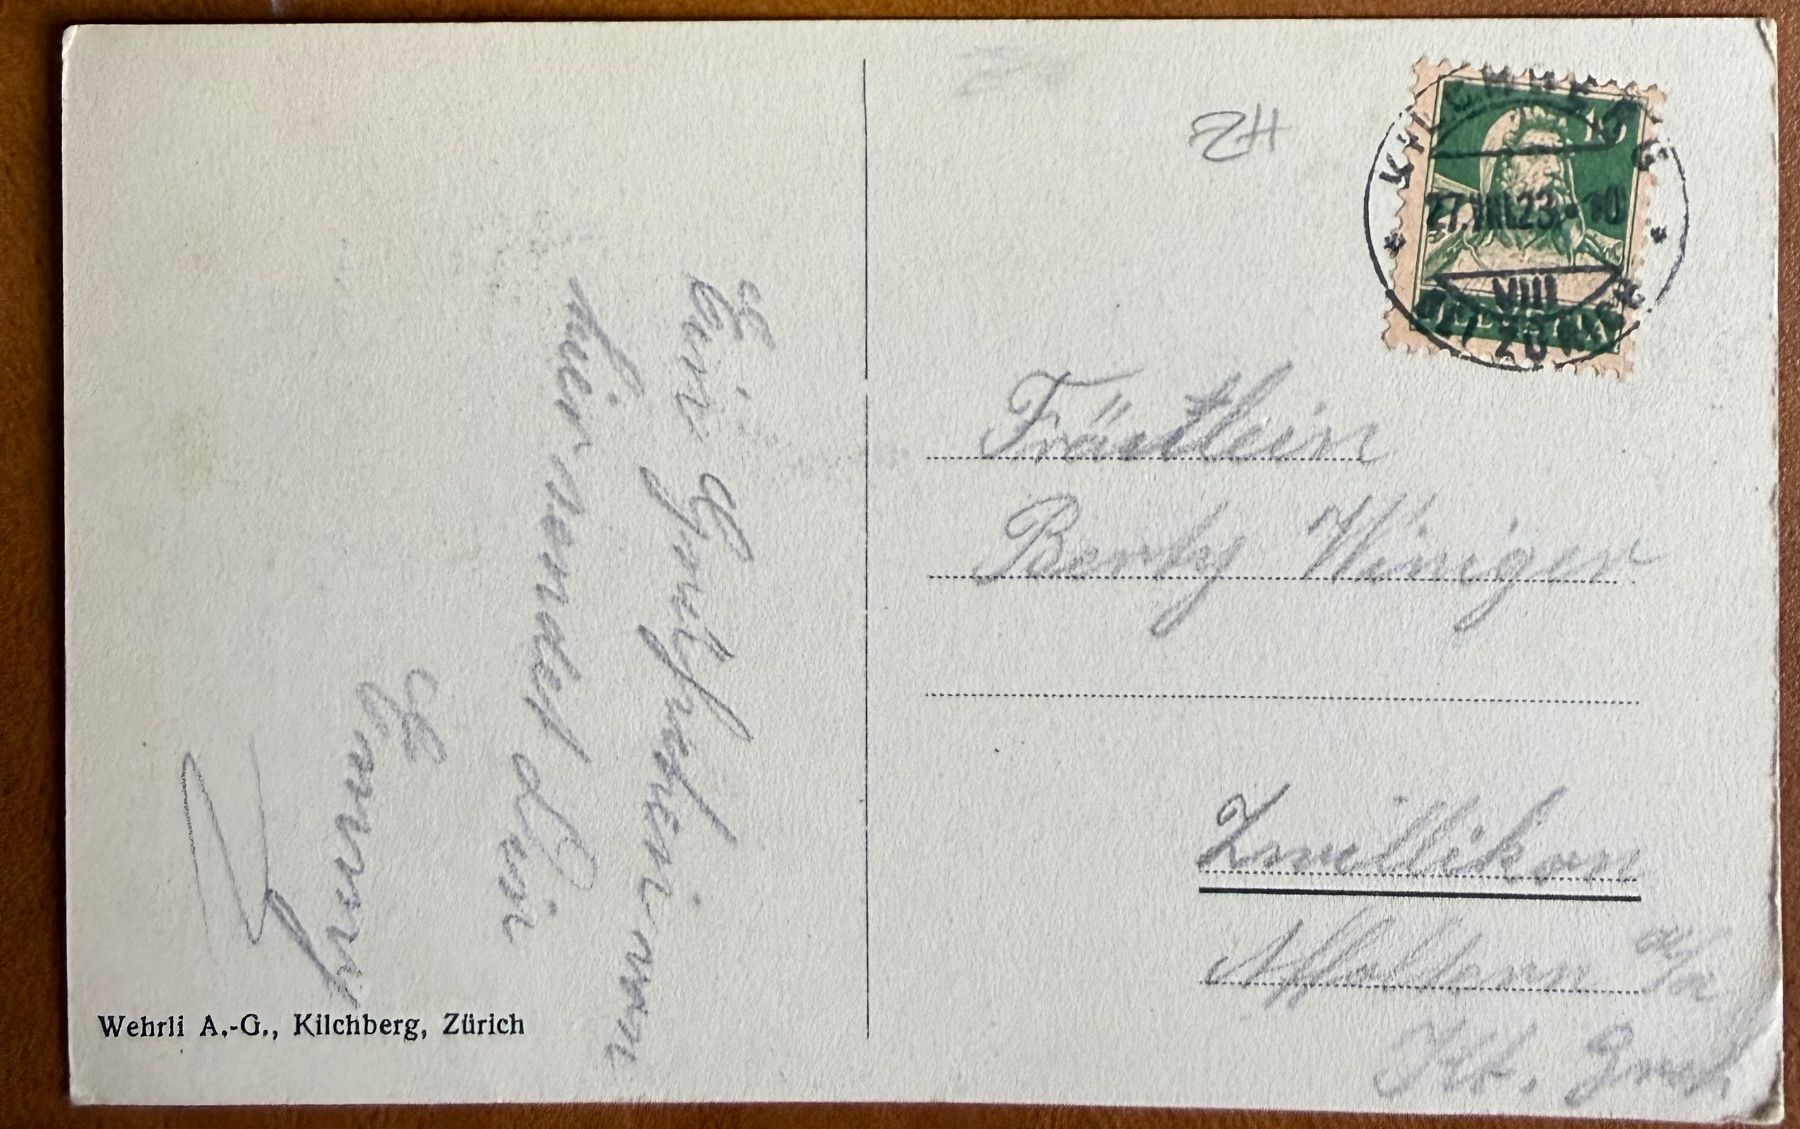 ZH
KILCHBERG
10
27.VIII.23.-10
VIII
BEI ZÜRICH
HELVETIA
Fräulein
Berty Winiger
Zwillikon
Affoltern a/A
Kt. Zürch
Ein Grüsschen von
hier sendet Dir
Emmy
Wehrli A.-G., Kilchberg, Zürich